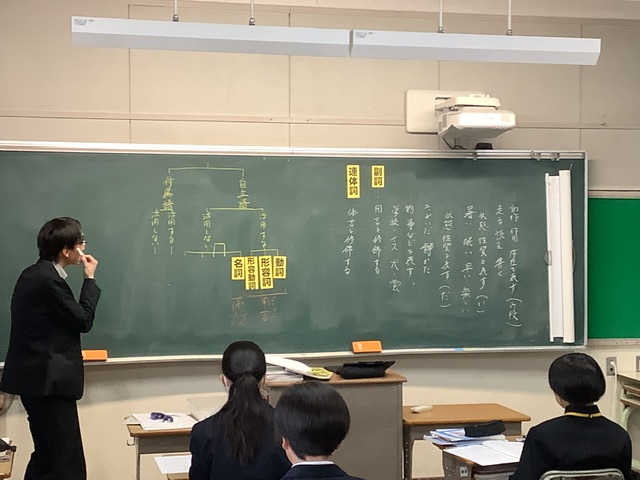 ・動作、作用、存在を表す（ウ段）
走る
・状態、性質を表す（い）
暑い 眠い 早い 楽しい
・状態、性質を表す（だ）
静かだ
・物事などを表す。
学校 イス 犬 雲
副詞
・用言を修飾する
連体詞
・体言を修飾する
自立語
活用する
動詞
形容詞
形容動詞
活用しない
名詞
付属語
活用する
活用しない